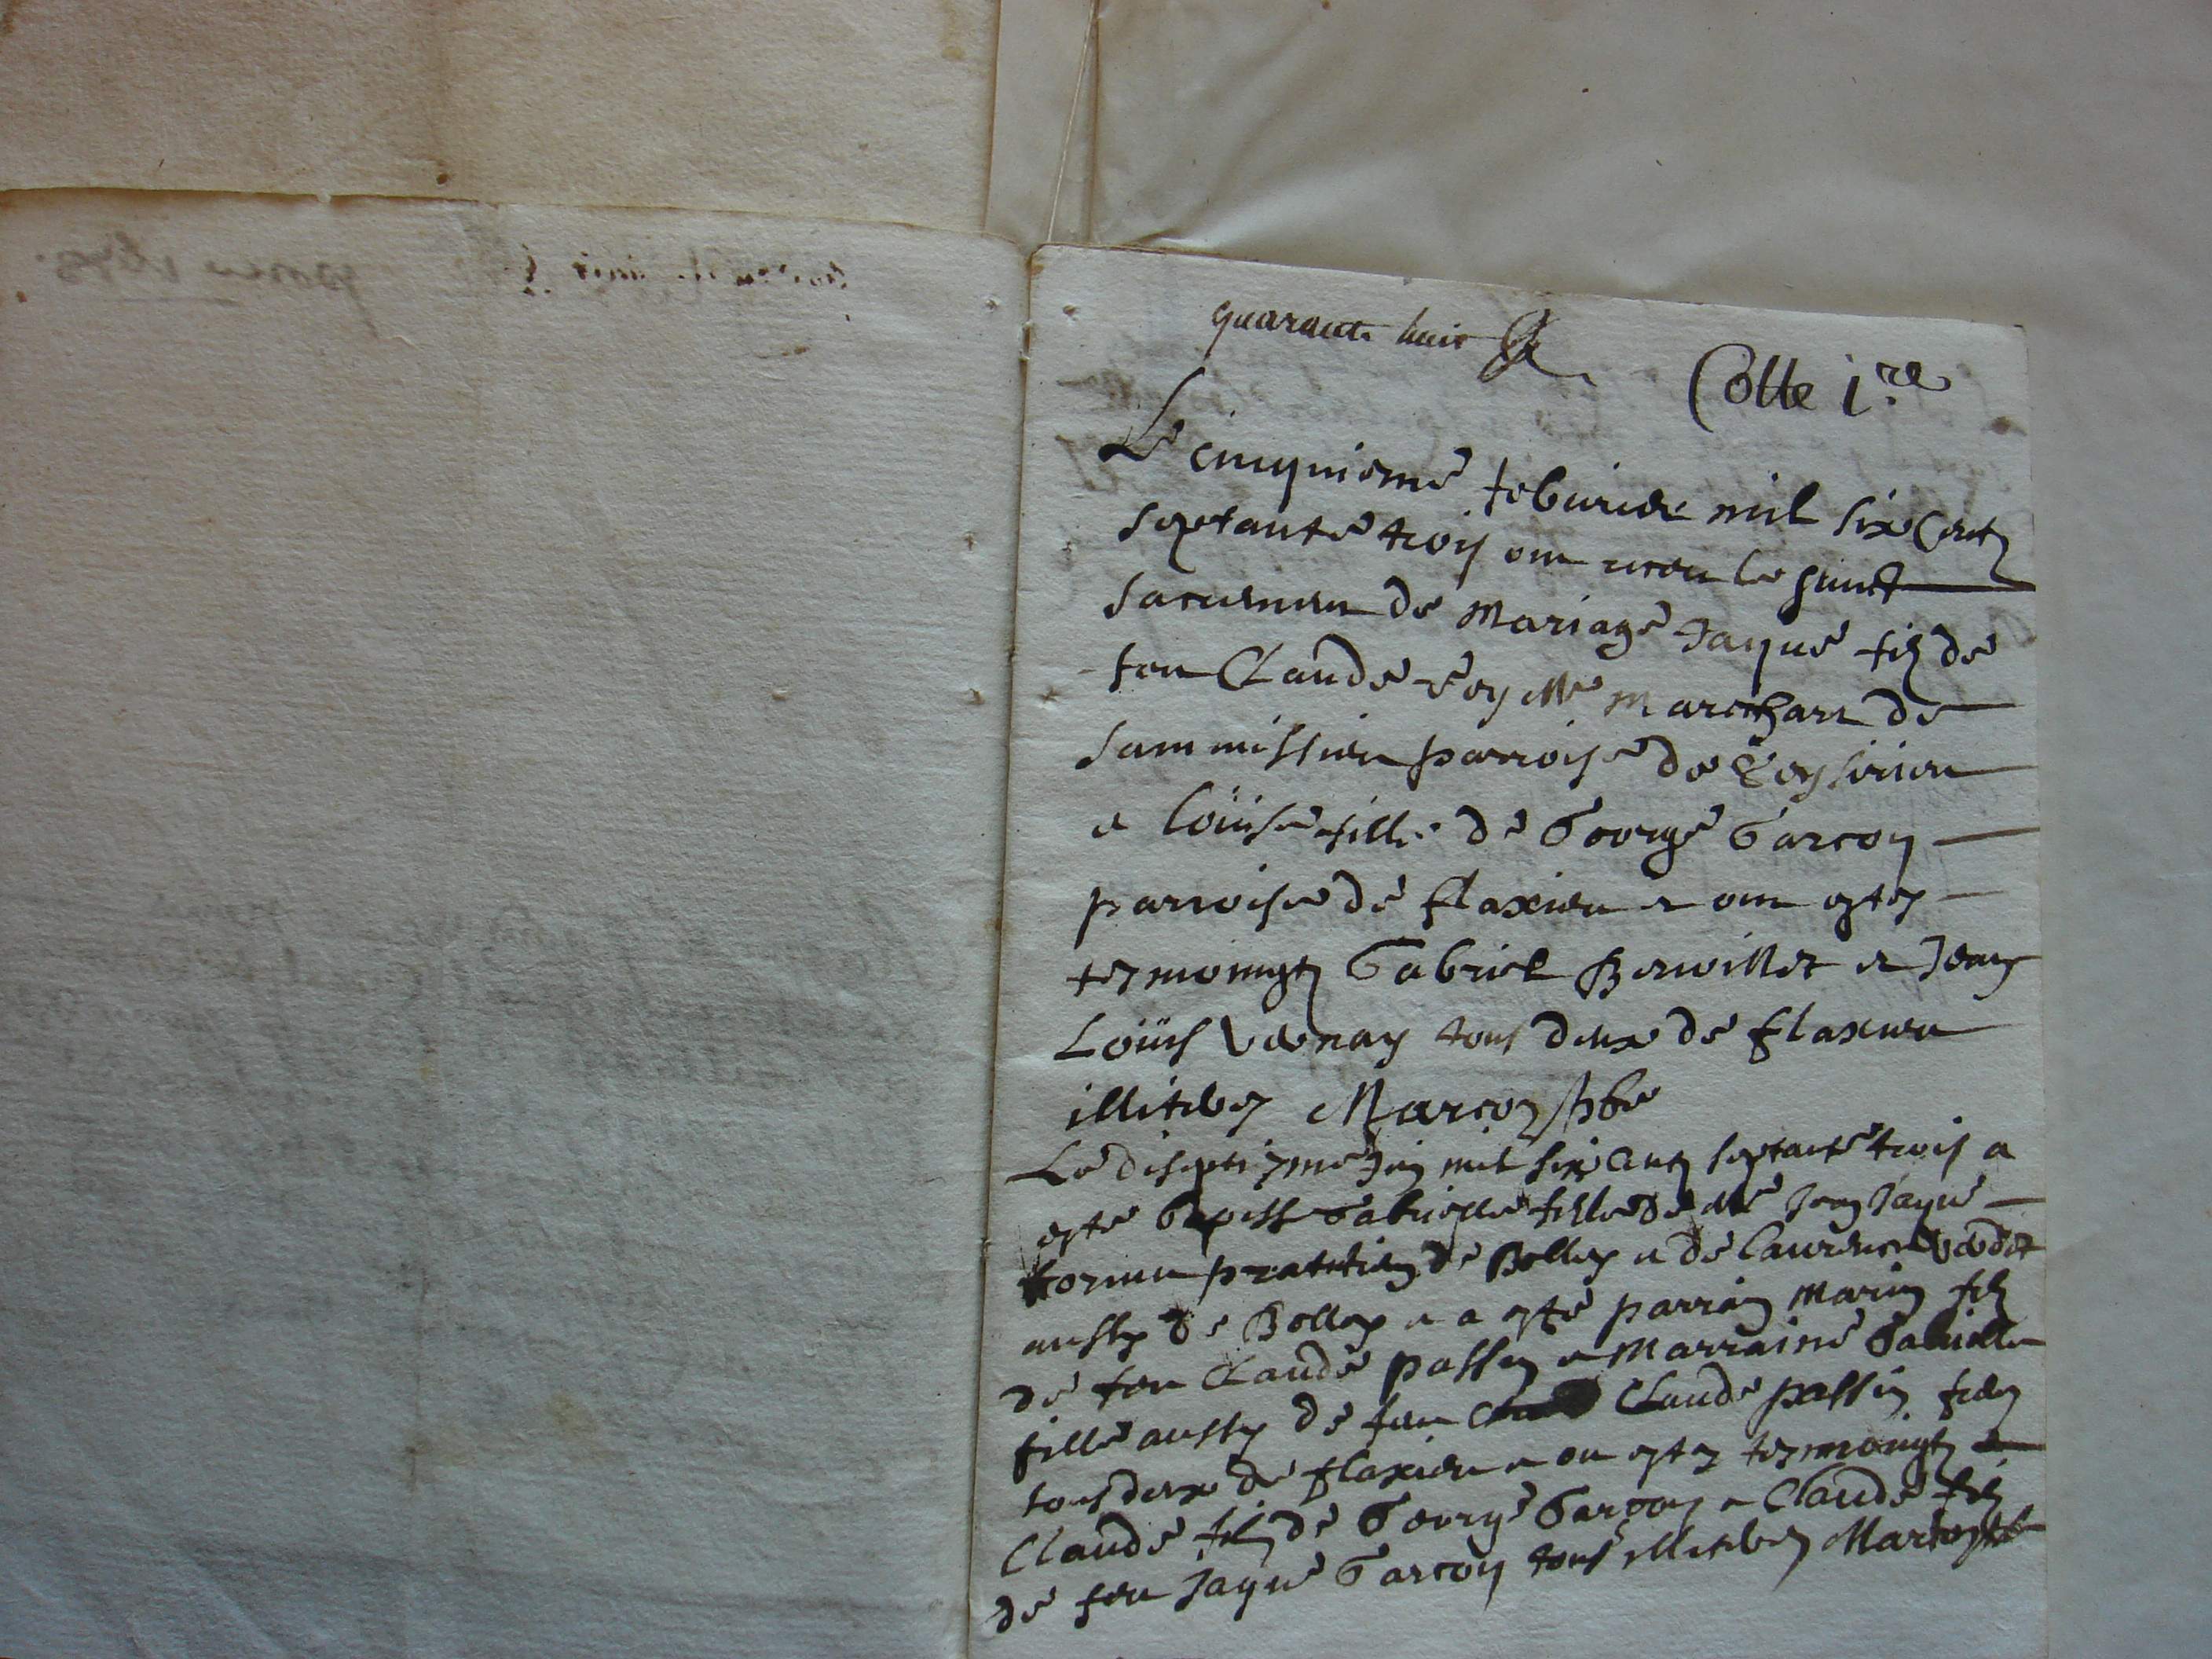 quarante huit
Cotte 1re
Le cinquieme feburier mil six centz
septante troys ont receu le sainct
sacrement de Mariage Jaque filz de
feu Claude Rey Me Marechart de
sammissieu parroisse de Ceyserieu
et Loüise fille de George Garcon
parroisse de flaxieu et ont estez
tesmoingtz Gabriel Bervillet et Jean
Loüis Vernay tous deux de flaxieu
illiterez Marcoz pbre
Le diseptiesme Jin mil six centz septante trois a
este Baptisé Gabrielle fille de Me Jean Jaque
pratitien de Belley et de Laurence
aussy de Belley et a esté parrain Marin filz
de feu Claude passin et Marraine Gabrielle
fille aussy de feu Claude passin
tous deux de flaxieu et on estez tesmoingtz
Claude filz de George Garcon et Claude filz
de feu Jaque Garcon tous illiterez Marcoz pbre